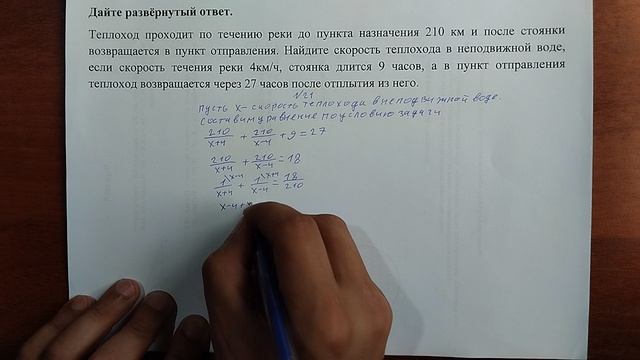 Дайте развёрнутый ответ.
Теплоход проходит по течению реки до пункта назначения 210 км и после стоянки
возвращается в пункт отправления. Найдите скорость теплохода в неподвижной воде,
если скорость течения реки 4км/ч, стоянка длится 9 часов, а в пункт отправления
теплоход возвращается через 27 часов после отплытия из него.
№21
Пусть x - скорость теплохода в неподвижной воде.
Составим уравнение по условию задачи
210/x+4 + 210/x-4 + 9 = 27
210/x+4 + 210/x-4 = 18
1\x-4/x+4 + 1\x+4/x-4 = 18/210
x-4+x